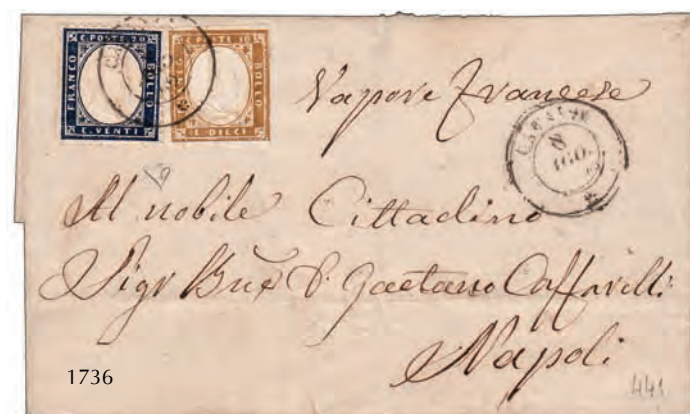 C. POSTE 20
FRANCO
BOLLO
C. VENTI
C. POSTE 10
BOLLO
C. DIECI
Vapore francese
8
AGO.
Al nobile Cittadino
Sigr D. Gaetano Caffarelli
Napoli
1736
441